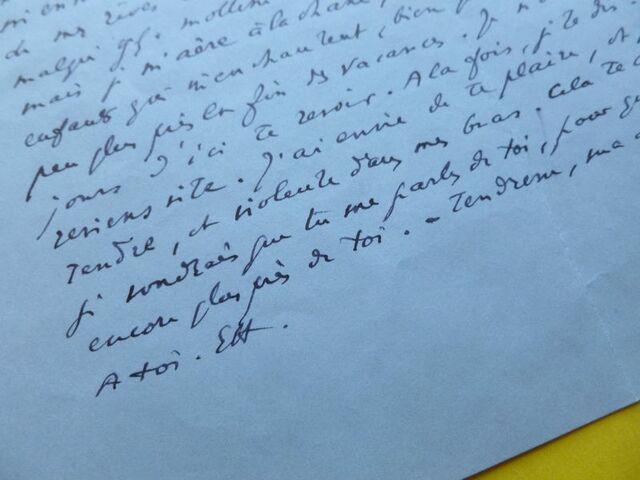 mi en
de mes rêves
malgré qq. mollem
mais je m'aère à la chasse,
enfants qui m'enchantent, bien
peu plus près la fin des vacances. Je n
jours d'ici te revoir. A la fois, je te dis
reviens vite. J'ai envie de te plaire, et
tendre, et violente dans mes bras. Cela te
je voudrais que tu me parles de toi, pour q
encore plus près de toi. - Tendresse, ma
A toi.